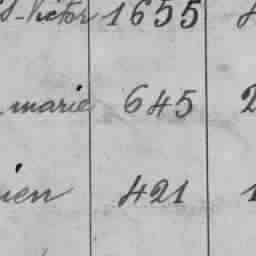 d-Victor 1655
marie 645 2
ien 421 1